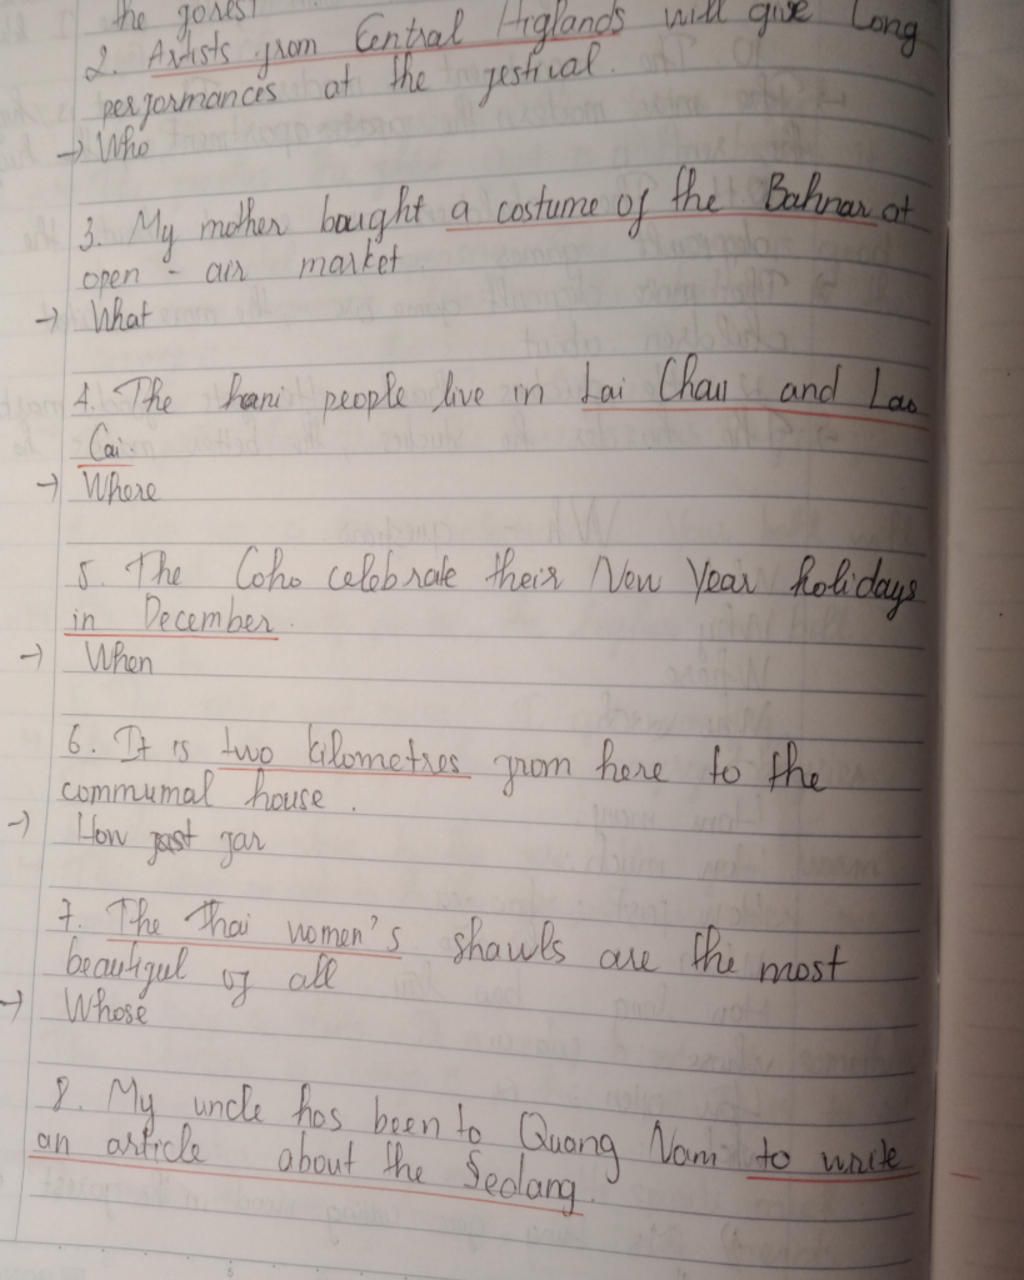 the forest
2. Artists from Central Higlands will give long
performances at the festival.
→ Who
3. My mother bought a costume of the Bahnar at
open - air market.
→ What
4. The hani people live in Lai Chau and Lao
Cai.
→ Where
5. The Coho celebrate their New Year holidays
in December.
→ When
6. It is two kilometres from here to the
communal house.
→ How fast far
7. The Thai women's shawls are the most
beautiful of all
→ Whose
8. My uncle has been to Quang Nam to write
an article about the Sedang.